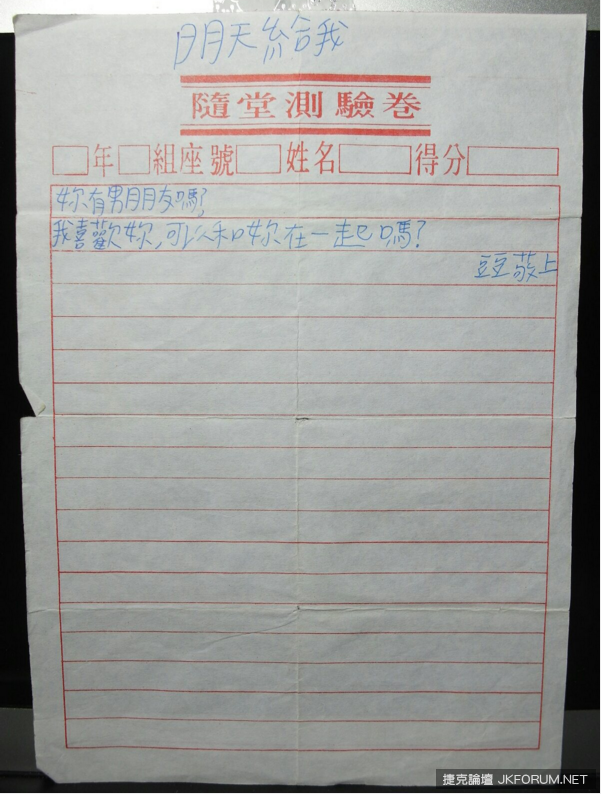 明天給我
隨堂測驗卷
年 組座號 姓名 得分
妳有男朋友嗎?
我喜歡妳,可以和妳在一起嗎?
豆豆敬上
捷克論壇 JKFORUM.NET